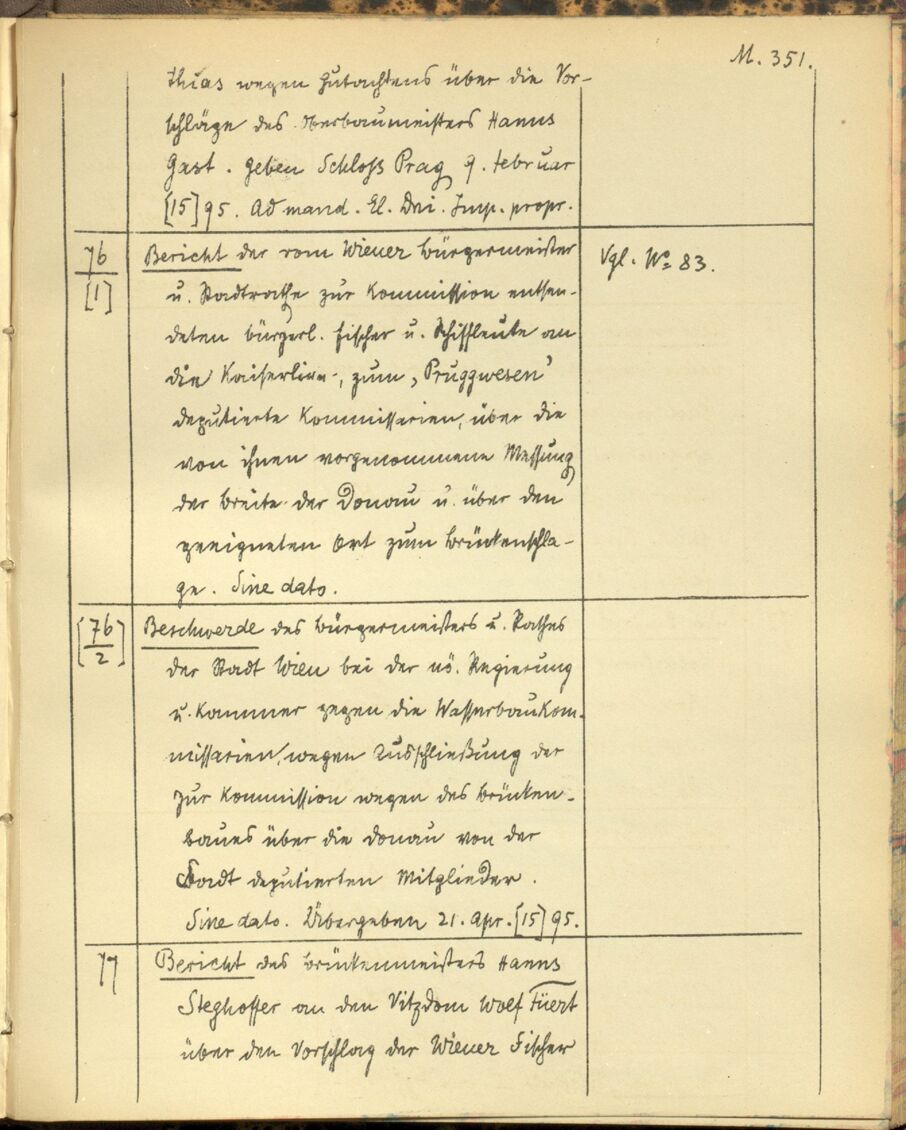 M. 351.
thias wegen Gutachtens über die Vor-
schläge des Oberbaumeisters Hanns
Gast. Geben Schloß Prag 9. Februar
[15]95. Ad mand. El. Dni. Imp. propr.
76
[1]
Bericht der vom Wiener Bürgermeister
Vgl. No 83.
u. Stadtrathe zur Kommission entsen-
deten bürgerl. Fischer u. Schiffleute an
die Kaiserlichen, zum ‚Pruggwesen'
deputierte Kommissarien, über die
von ihnen vorgenommene Messung
der Breite der Donau u. über den
geeigneten Ort zum Brückenschla-
ge. Sine dato.
[76
2]
Beschwerde des Bürgermeisters u. Rathes
der Stadt Wien bei der nö. Regierung
u. Kammer gegen die Wasserbaukom-
missarien, wegen Ausschließung der
zur Kommission wegen des Brücken-
baues über die Donau von der
Stadt deputierten Mitglieder.
Sine dato. Übergeben 21. Apr. [15]95.
77
Bericht des Brückenmeisters Hanns
Steghoffer an den Vitzdom Wolf Füert
über den Vorschlag der Wiener Fischer